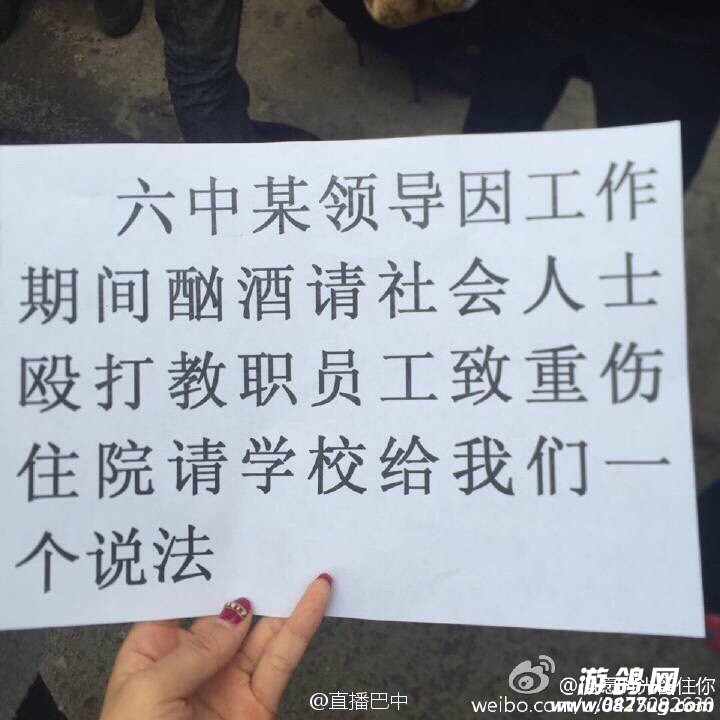 六中某领导因工作
期间酗酒请社会人士
殴打教职员工致重伤
住院请学校给我们一
个说法
@直播巴中
游鸽网
weibo.com/
www.0827ug.com